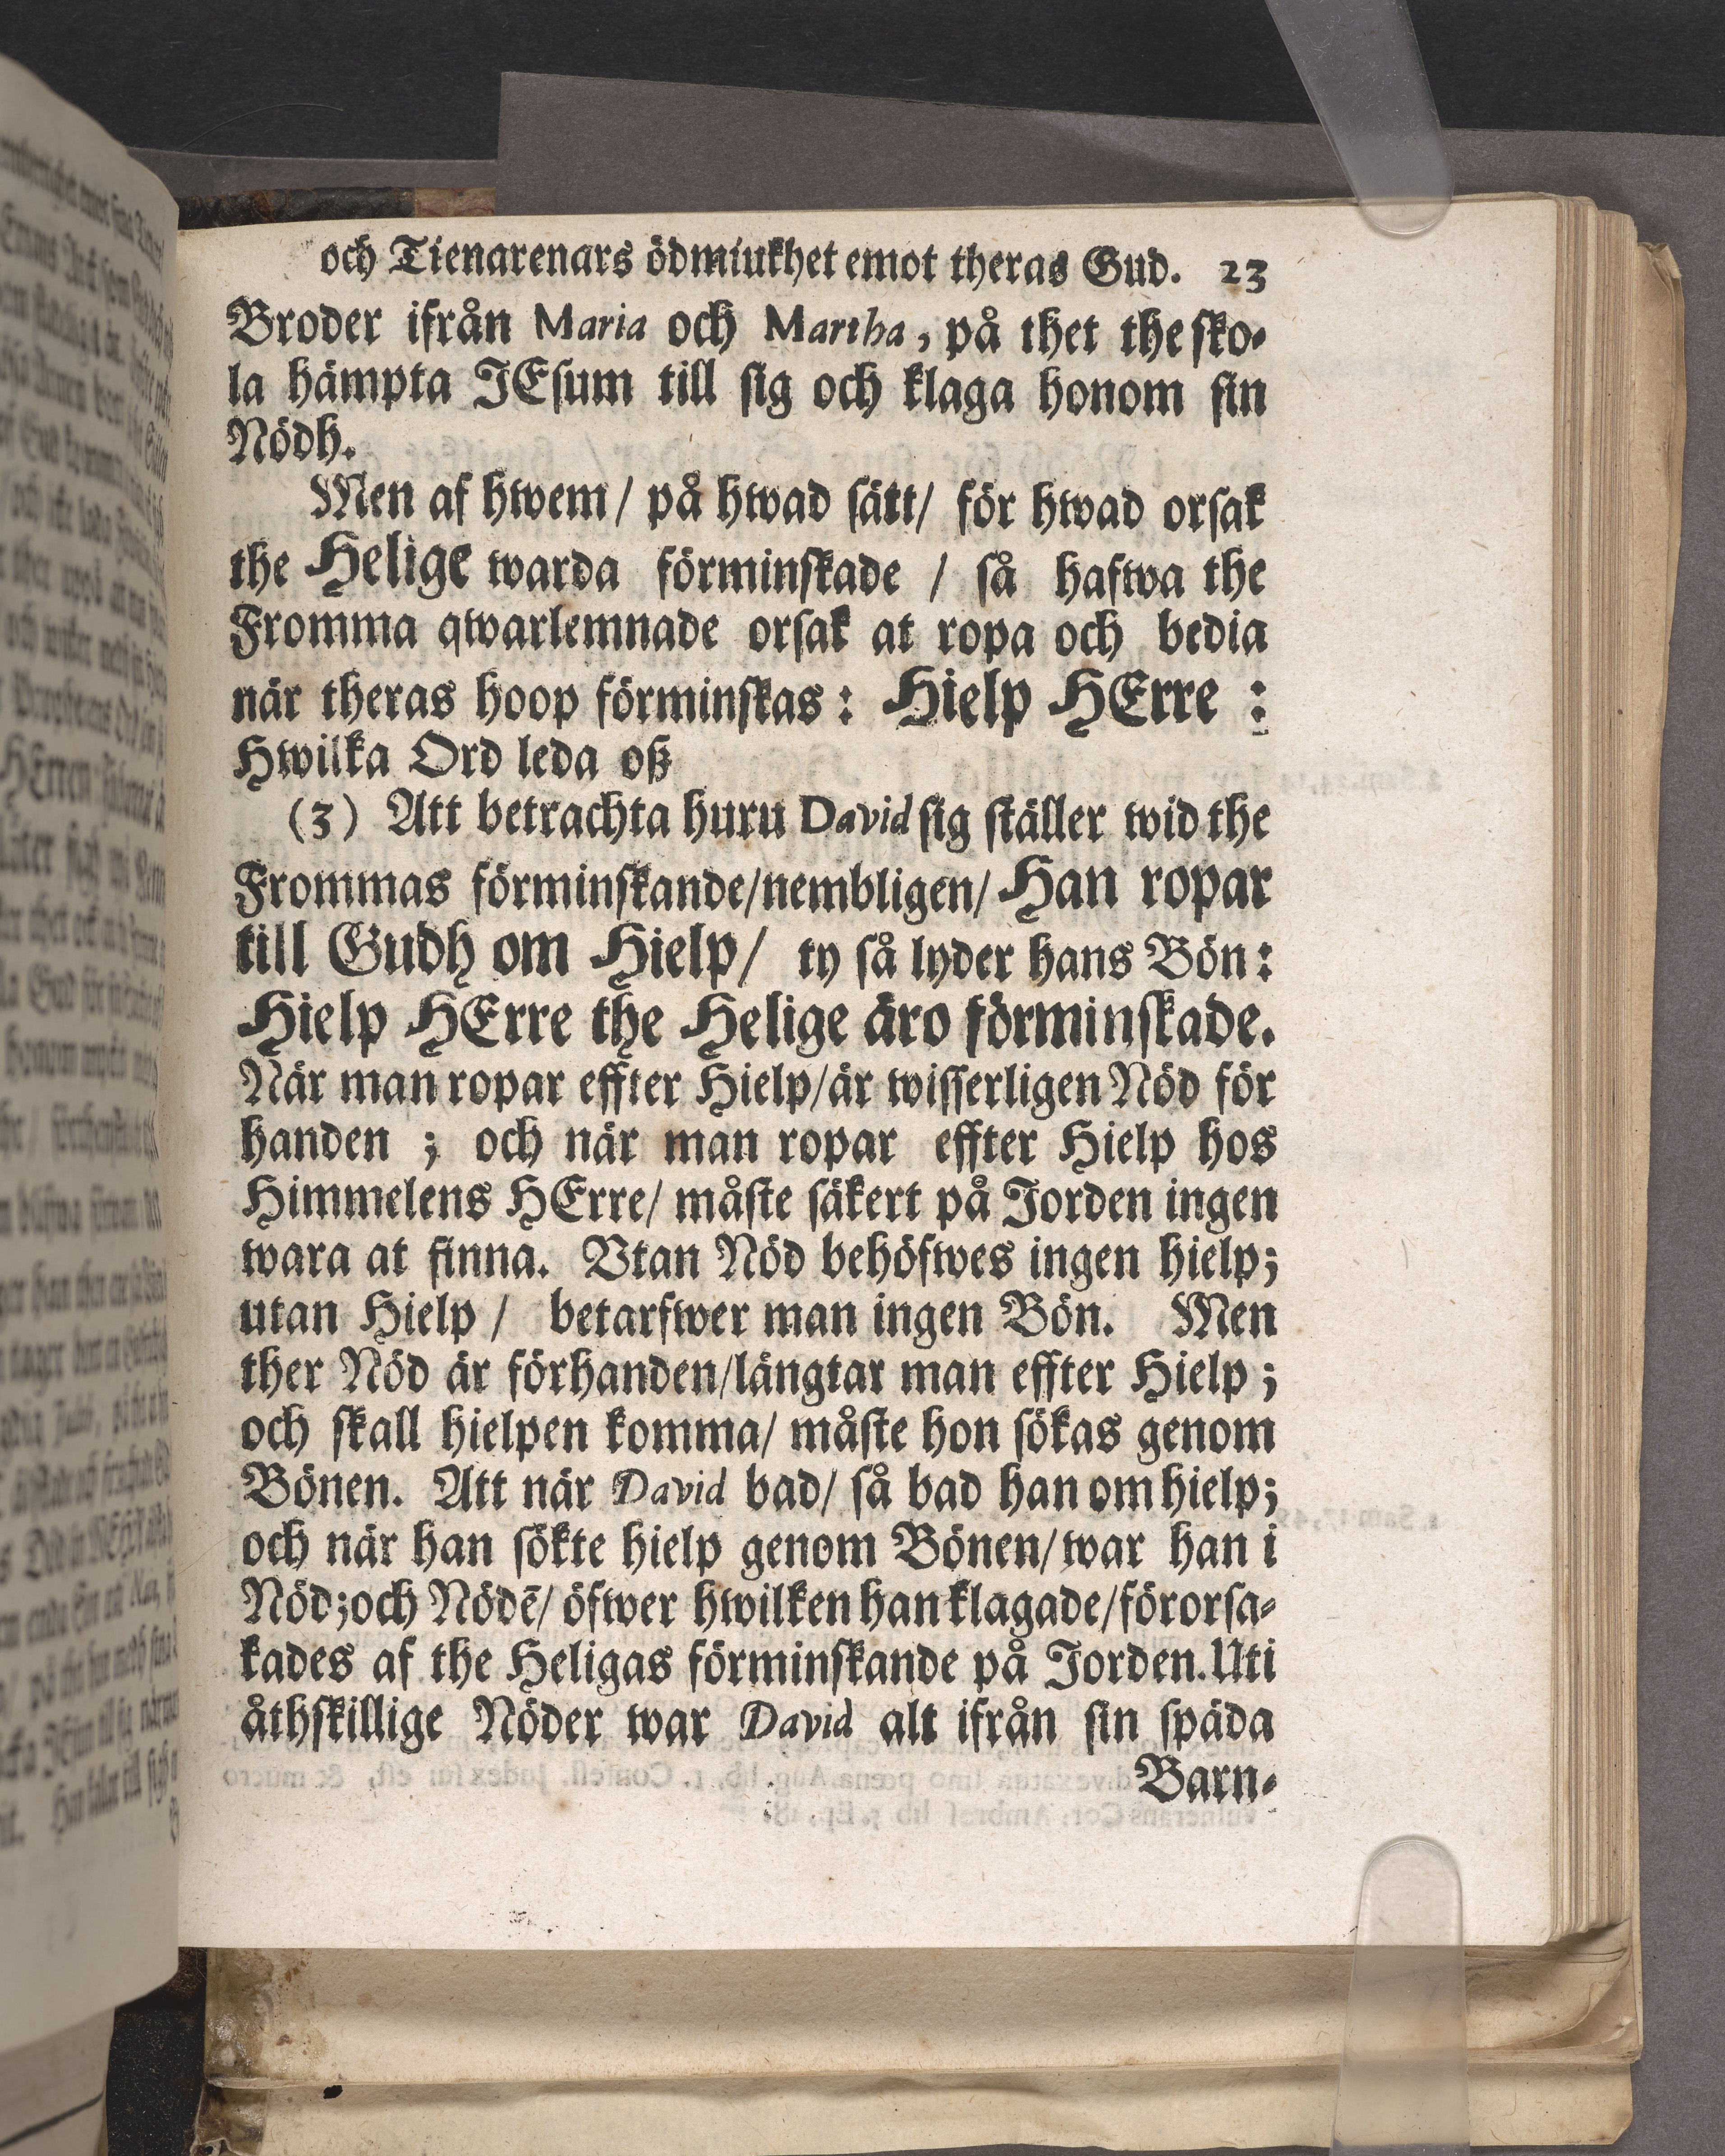 och Tienarenars ödmiukhet emot theras Gud. 23
Broder ifrån Maria och Martha, på thet the sko-
la hämpta JEsum till sig och klaga honom sin
Nödh.
Men af hwem/ på hwad sätt/ för hwad orsak
the Helige warda förminskade / så hafwa the
Fromma qwarlemnade orsak at ropa och bedia
när theras hoop förminskas: Hielp HErre :
Hwilka Ord leda oß
(3) Att betrachta huru David sig ställer wid the
Frommas förminskande/nembligen/ Han ropar
till Gudh om Hielp/ ty så lyder hans Bön:
Hielp HErre the Helige äro förminskade.
När man ropar effter Hielp/är wisserligen Nöd för
handen ; och när man ropar effter Hielp hos
Himmelens HErre/ måste säkert på Jorden ingen
wara at finna. Vtan Nöd behöfwes ingen hielp;
utan Hielp / betarfwer man ingen Bön. Men
ther Nöd är förhanden/längtar man effter Hielp;
och skall hielpen komma/ måste hon sökas genom
Bönen. Att när David bad/ så bad han om hielp;
och när han sökte hielp genom Bönen/war han i
Nöd;och Nödē/ öfwer hwilken han klagade/förorsa-
kades af the Heligas förminskande på Jorden.Uti
åthskillige Nöder war David alt ifrån sin späda
Barn-